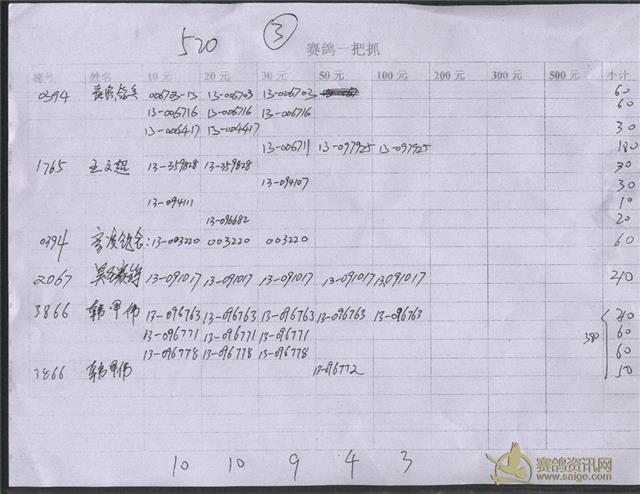 520 ③ 赛鸽一把抓
棚号 姓名 10元 20元 30元 50元 100元 200元 300元 500元 小计
0394 006703-13 13-006703 13-006703 60
13-006716 13-006716 13-006716 60
13-006417 13-004417 30
13-006711 13-097925 13-097925 180
1765 王文超 13-359828 13-359828 30
13-094107 30
13-094111 10
13-096682 20
0394 :13-003220 003220 003220 60
2067 13-091017 13-091017 13-091017 13-091017 13,091017 210
3866 韩甲伟 13-096763 13-096763 13-096763 13-096763 13-096763 210
13-096771 13-096771 13-096771 380 60
13-096778 13-096778 13-096778 60
3866 韩甲伟 13-096772 50
10 10 9 4 3
赛鸽资讯网
www.saige.com